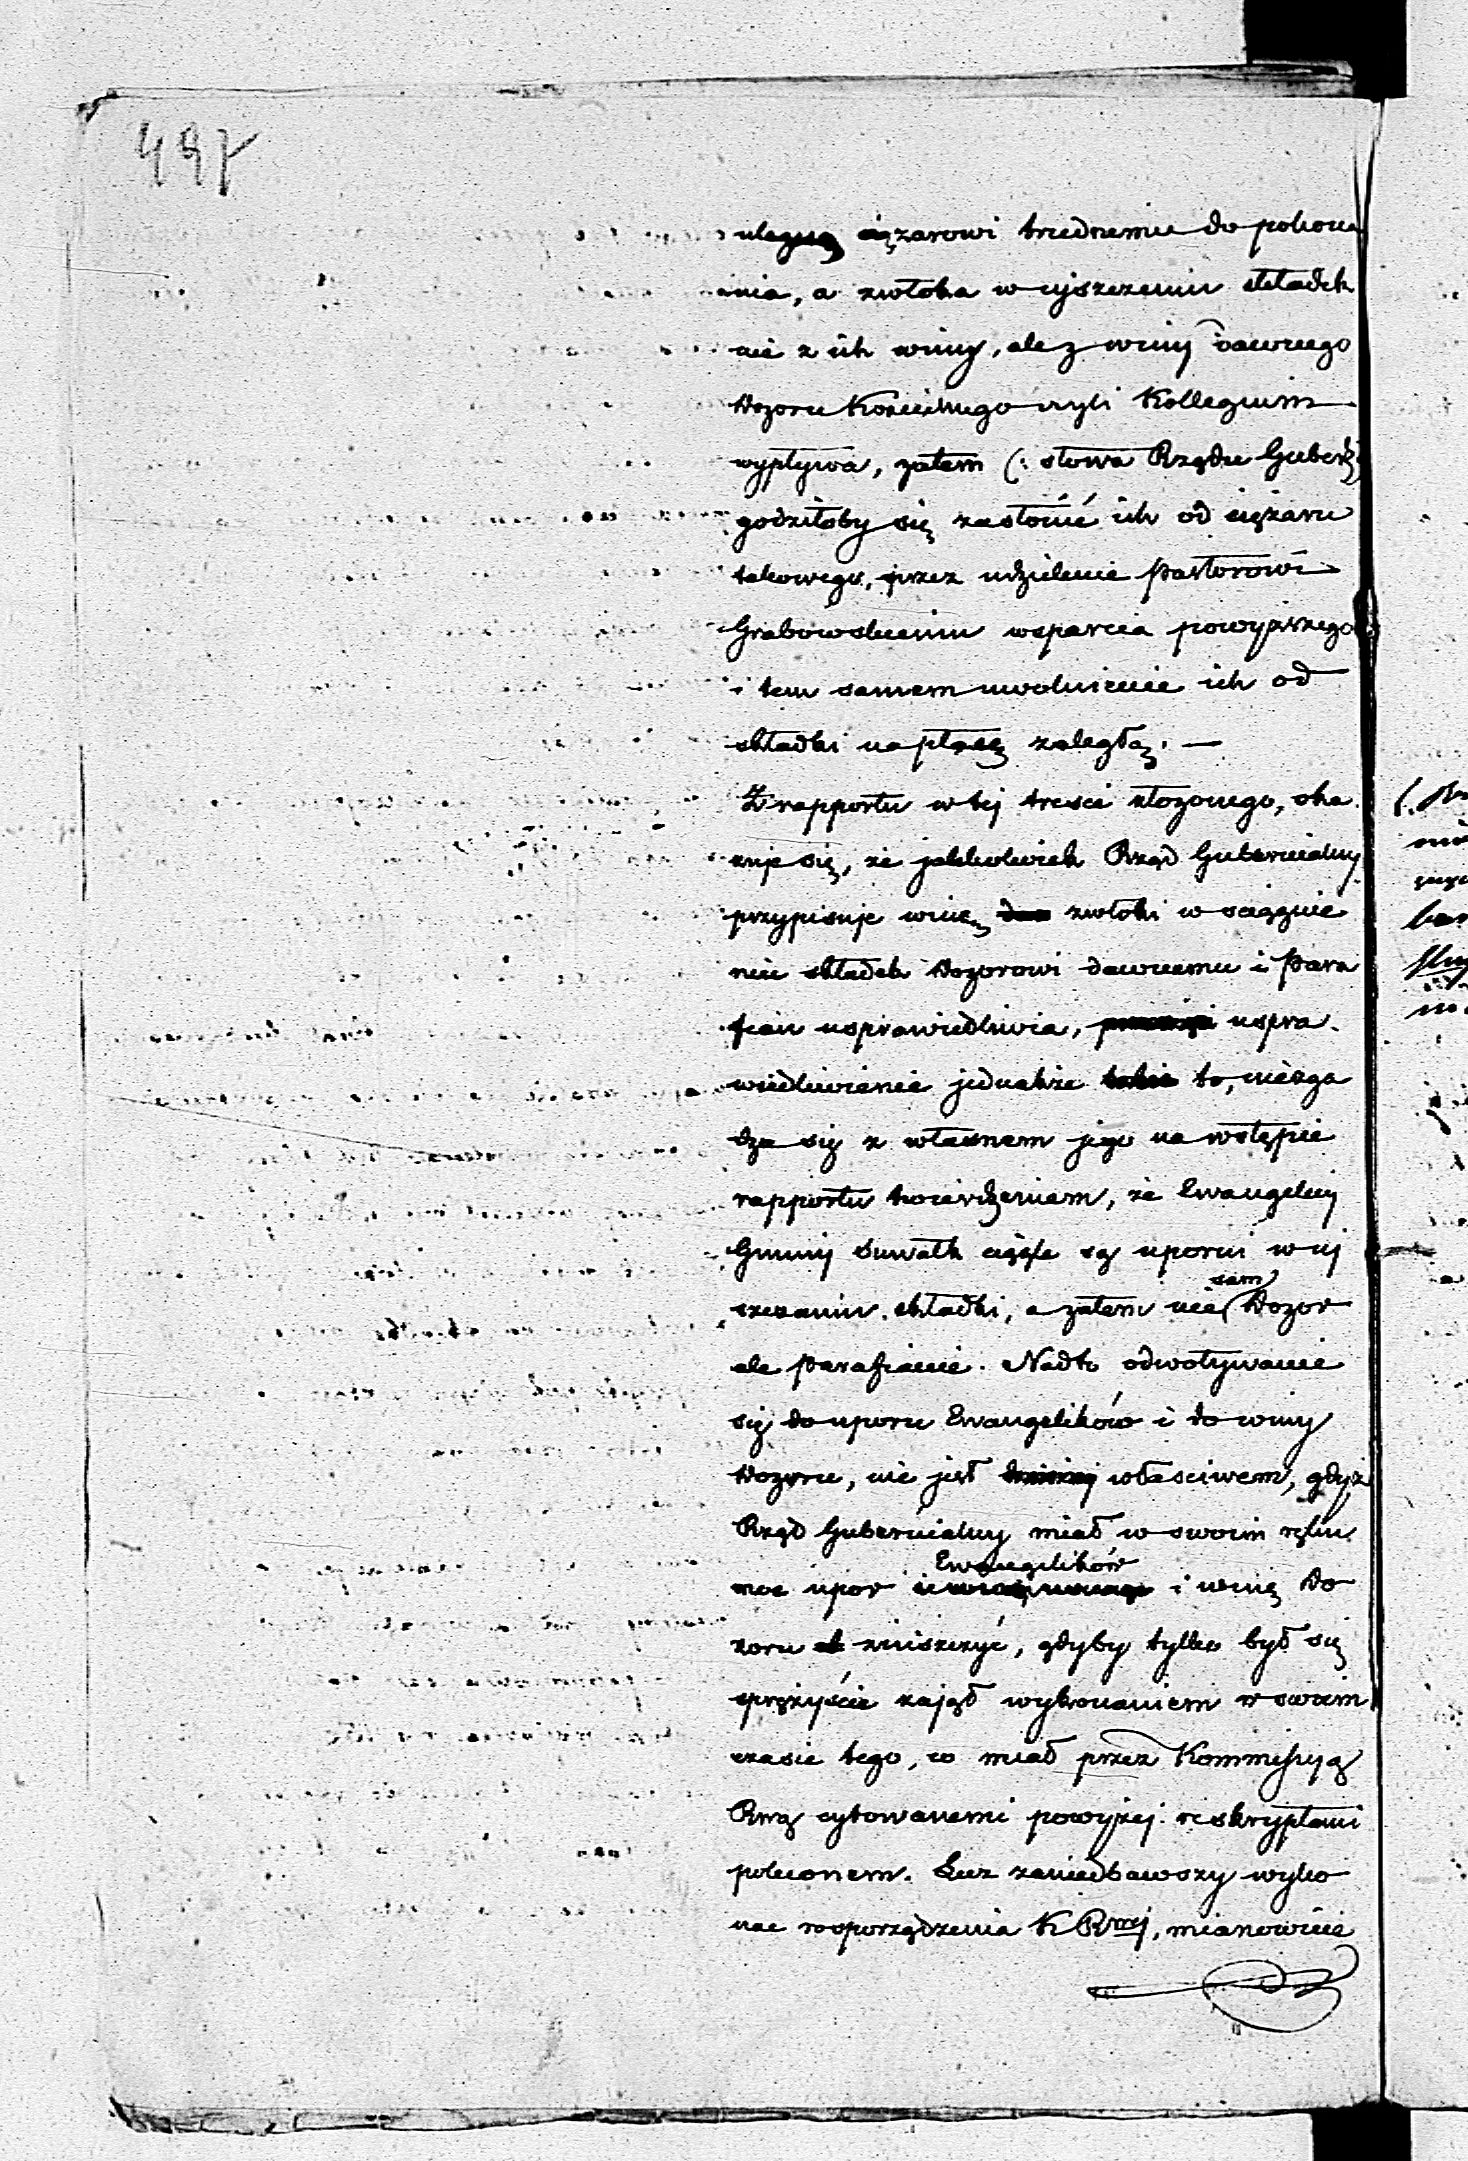 497
ulegną ciężarowi trudnemu do pokona
nia, a zwłoka w ujszczeniu składek
nie z ich winy, ale z winy dawnego
Dozoru Kościelnego czyli Kollegium
wypływa, zatem (: słowa Rządu Gubern:)
godziłoby się zasłonić ich od ciężaru
takowego, przez udzielenie Pastorowi
Grabowskiemu wsparcia powyższego
i tem samem uwolnienie ich od
składki na płacę zaległą. —
Z rapportu w tej tresci złozonego, oka
zuje się, że jakkolwiek Rząd Gubernialny
przypisuje winę zwłoki w sciągnie
niu składek Dozorowi dawnemu i Para
fian usprawiedliwia, uspra.
wiedliwienie jednakże to, niezga
dza się z własnem jego na wstępie
rapportu twierdzeniem, że Ewangelicy
Gminy Suwałk ciągle są uporni w uj
szczaniu składki, a zatem nie sam Dozor
ale Parafianie. Nadto odwoływanie
się do uporu Ewangelików i do winy
Dozoru, nie jest własciwem, gdyż
Rząd Gubernialny miał w swoim ręku
moc upor Ewangelików i winę Do
zoru zniszczyć, gdyby tylko był się
sprężyście zajął wykonaniem w swoim
czasie tego, co miał przez Kommissyą
Rzą cytowanemi powyżej reskryptami
poleconem. Lecz zaniedbawszy wyko
nać rosporządzenia K Rząej, mianowicie